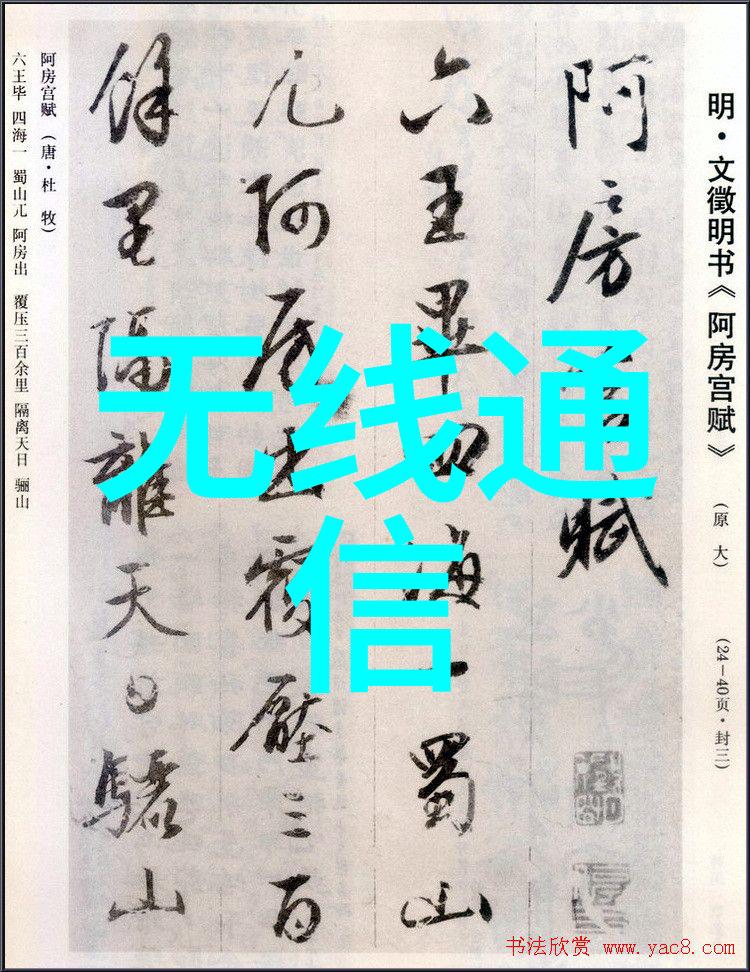 明·文徵明书《阿房宫赋》
（原 大）
（24—40页·封三）
阿房宮賦
六王畢四海一蜀山
兀阿房出覆壓三百
餘里隔離天日驪山
阿房宫赋（唐·杜 牧）
六王毕 四海一 蜀山兀 阿房出 覆压三百余里 隔离天日 骊山
无线通
信
书法欣赏 www.yac8.com